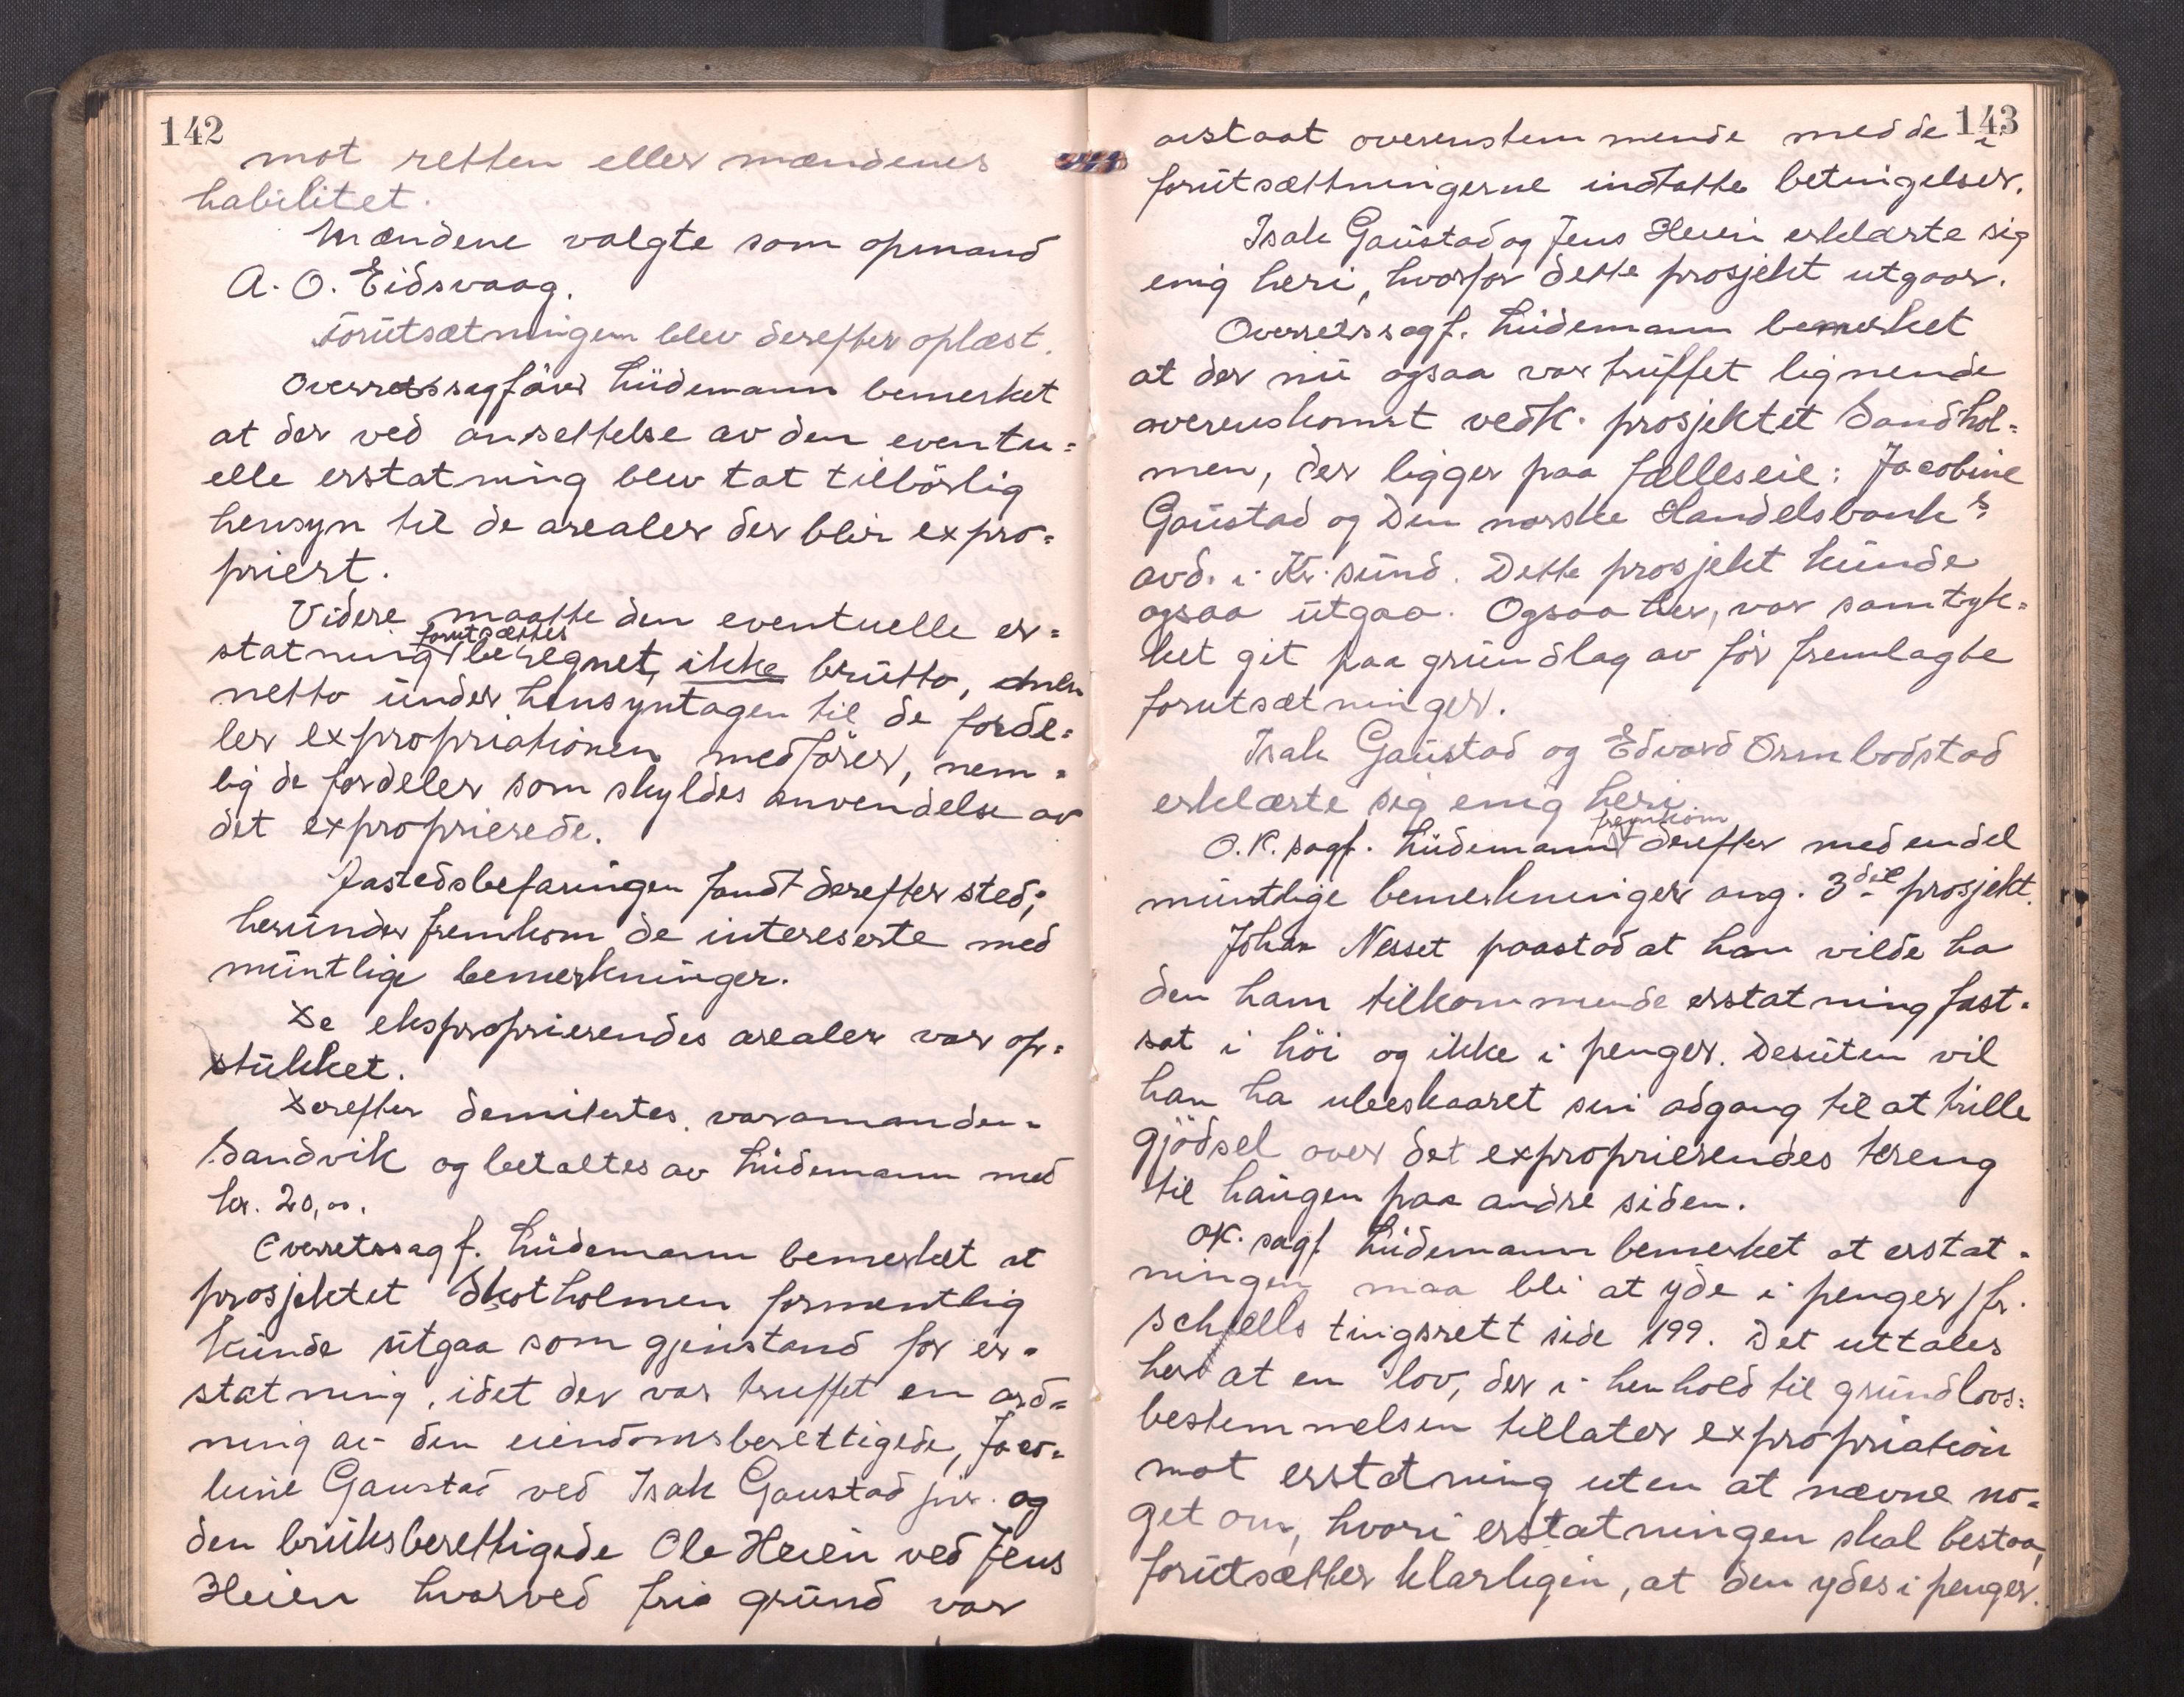 142
mot retten eller mændenes
habilitet.
Mændene valgte som opmand
A. O. Eidsvaag.
Forutsætningen blev derefter oplæst.
Overretssagfører Lüdemann bemerket
at der ved ansettelse av den eventu=
elle erstatning blev tat tilbörlig
hensyn til de arealer der blir expro=
priert.
Videre maatte den eventuelle er=
forutsættes
statning beregnet, ikke brutto, men
netto under hensyntagen til de forde=
ler expropriationen medfører, nem=
lig de fordeler som skyldes anvendelse av
det exproprierede.
Jastedsbefaringen fandt derefter sted;
herunder fremkom de intereserte med
muntlige bemerkninger.
De eksproprierendes arealer var op=
stukket.
Derefter demitertes varamanden
Sandvik og betaltes av Lüdemann med
kr. 20,00.
Overretssagf. Lüdemann bemerket at
prosjektet Skotholmen formentlig
kunde utgaa som gjenstand for er=
statning, idet der var truffet en ord=
ning av den eiendomsberettigede, Jaco=
bine Gaustad ved Isak Gaustad jnr. og
den bruksberettigede Ole Heien ved Jens
Heien hvorved fri grund var
143
avstaat overenstemmende med de i
forutsættningerne indtatte betingelser.
Isak Gaustad og Jens Heien erklærte sig
enig heri, hvorfor dette prosjekt utgaar.
Overretssagf. Lüdemann bemerket
at der nu ogsaa var truffet lignende
overenskomst vedk. prosjektet Sandhol=
men, der ligger paa fælleseie: Jacobine
Gaustad og Den norske Handelsbank's
avd. i Kr.sund. Dette prosjekt kunde
ogsaa utgaa. Ogsaa her, var samtyk=
ket git paa grundlag av før fremlagte
forutsætninger.
Isak Gaustad og Edvard Ormbodstad
erklærte sig enig heri.
fremkom
O.R. sagf. Lüdemann derefter med endel
muntlige bemerkninger ang. 3die prosjekt.
Johan Nesset paastod at han vilde ha
den ham tilkommende erstatning fast=
sat i höi og ikke i penger. Desuten vil
han ha ubeskaaret sin adgang til at trille
gjödsel over det exproprierendes tereng
til haugen paa andre siden.
OR. sagf. Lüdemann bemerket at erstat=
ningen maa bli at yde i penger jfr.
Schjells tingsrett side 199. Det uttales
her at en lov, der i henhold til grundlovs=
bestemmelsen tillater expropriation
mot erstatning uten at nævne no=
get om, hvori erstatningen skal bestaa,
forutsætter klarligen, at den ydes i penger.